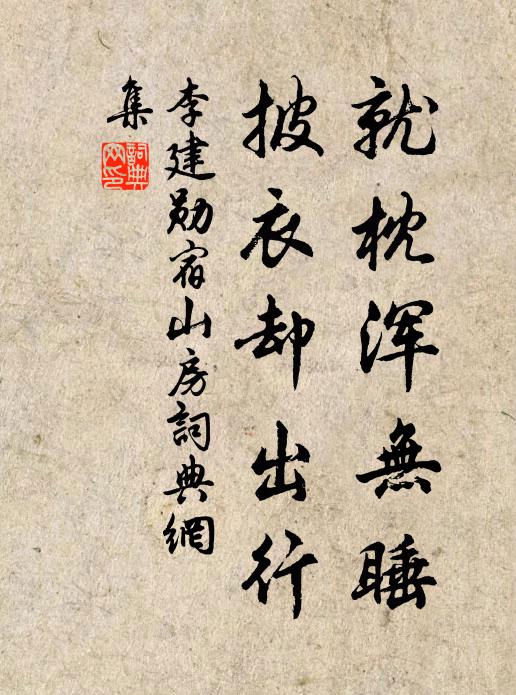 就枕浑無睡
披衣却出行
李建勋宿山房詞典網
集
詞典
网印